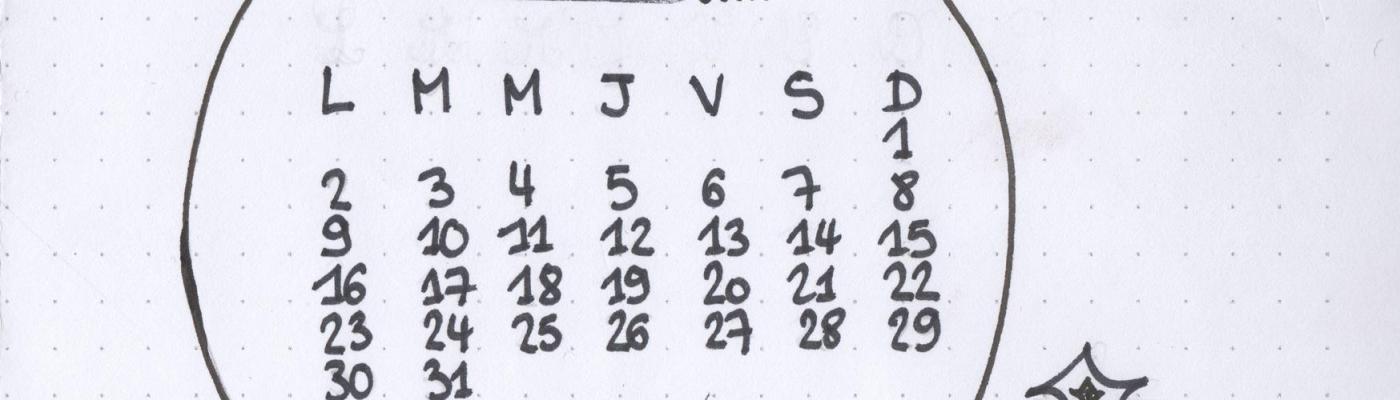 L M M J V S D
1
2 3 4 5 6 7 8
9 10 11 12 13 14 15
16 17 18 19 20 21 22
23 24 25 26 27 28 29
30 31